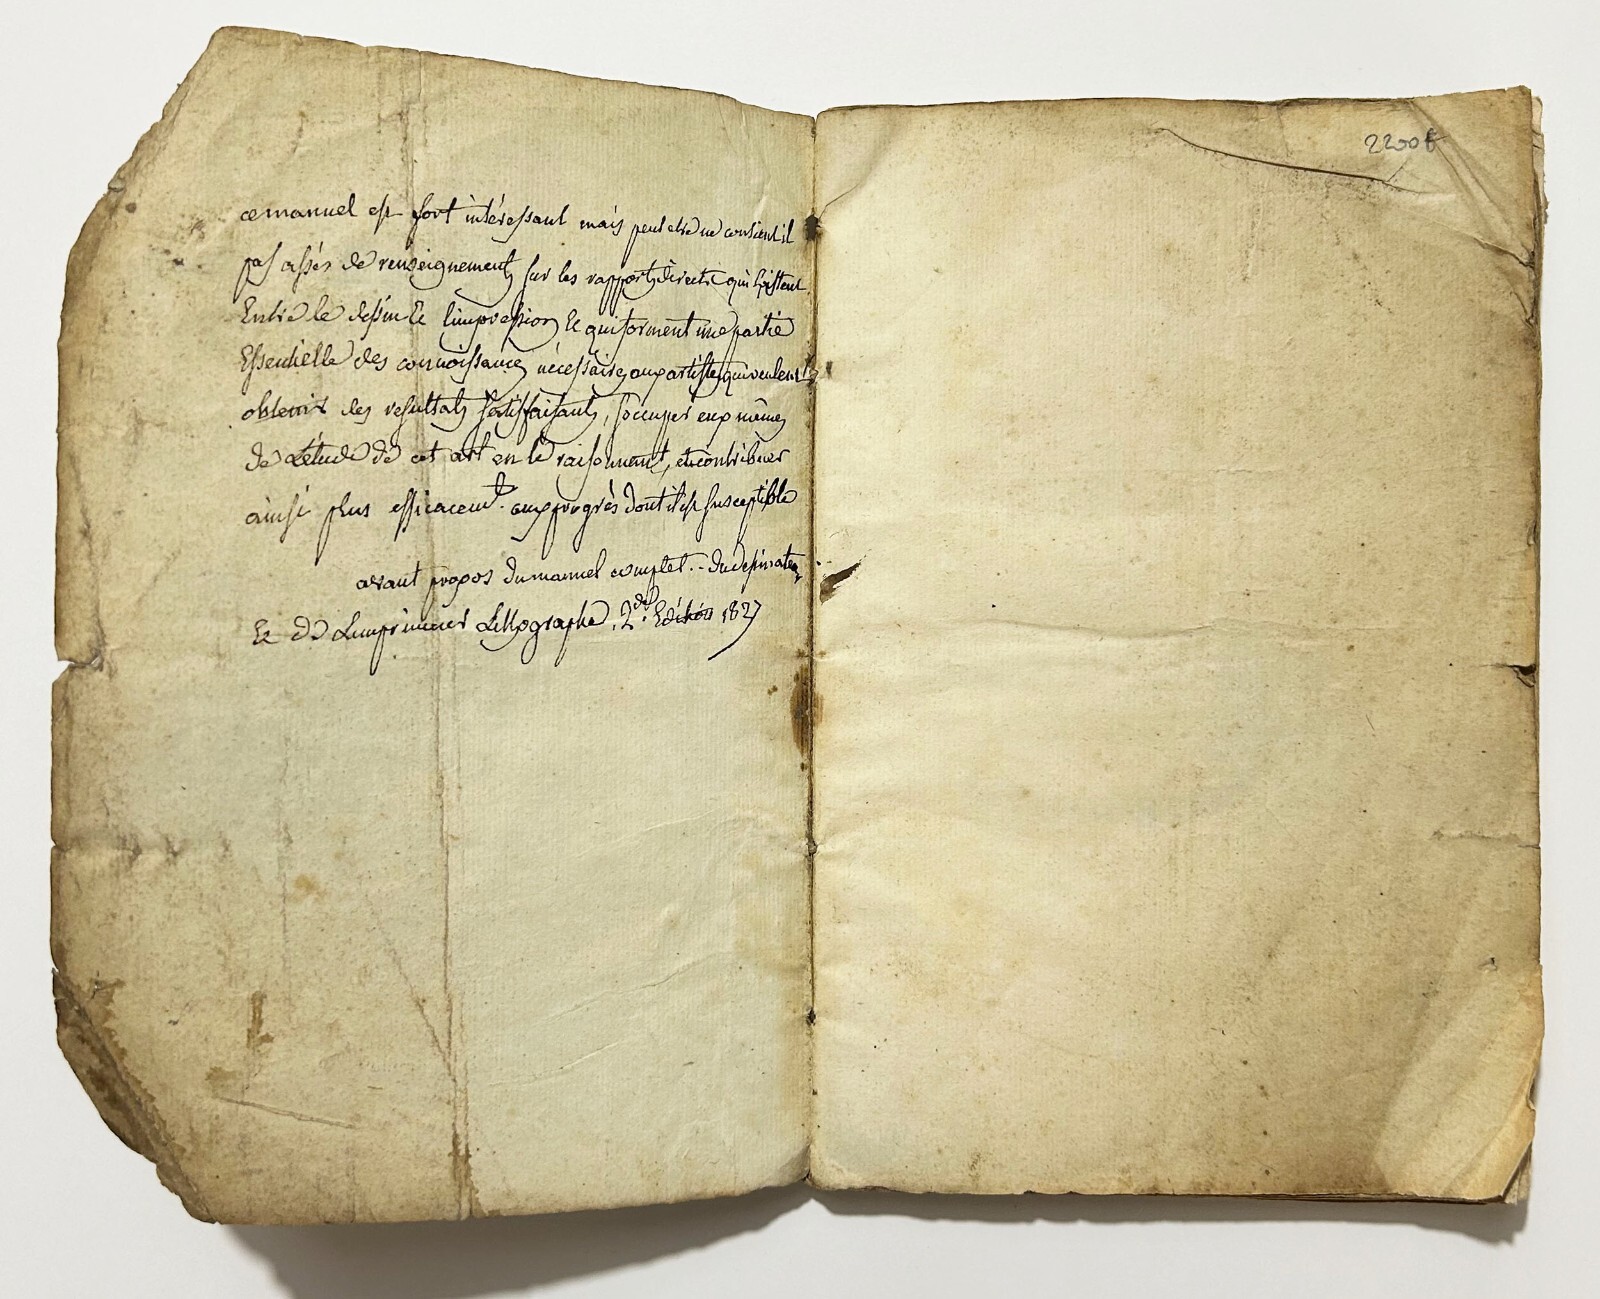 ce manuel est fort intéressant mais peut etre ne contient il
pas assés de renseignements sur les rapports directs qui Existent
Entre le dessin Et l'impression Et qui forment une partie
Essentielle des connoissances nécessaires aux artistes qui veulent
obtenir des resultats satisfaisants, s'occuper eux mêmes
de L'étude de cet art en le raisonnant, et contribuer
ainsi plus efficacemt. aux progrès dont il est susceptible
avant propos du manuel complet.. du dessinateur
Et de L'imprimeur Lithographe. 2de. Edition 1827
2200f